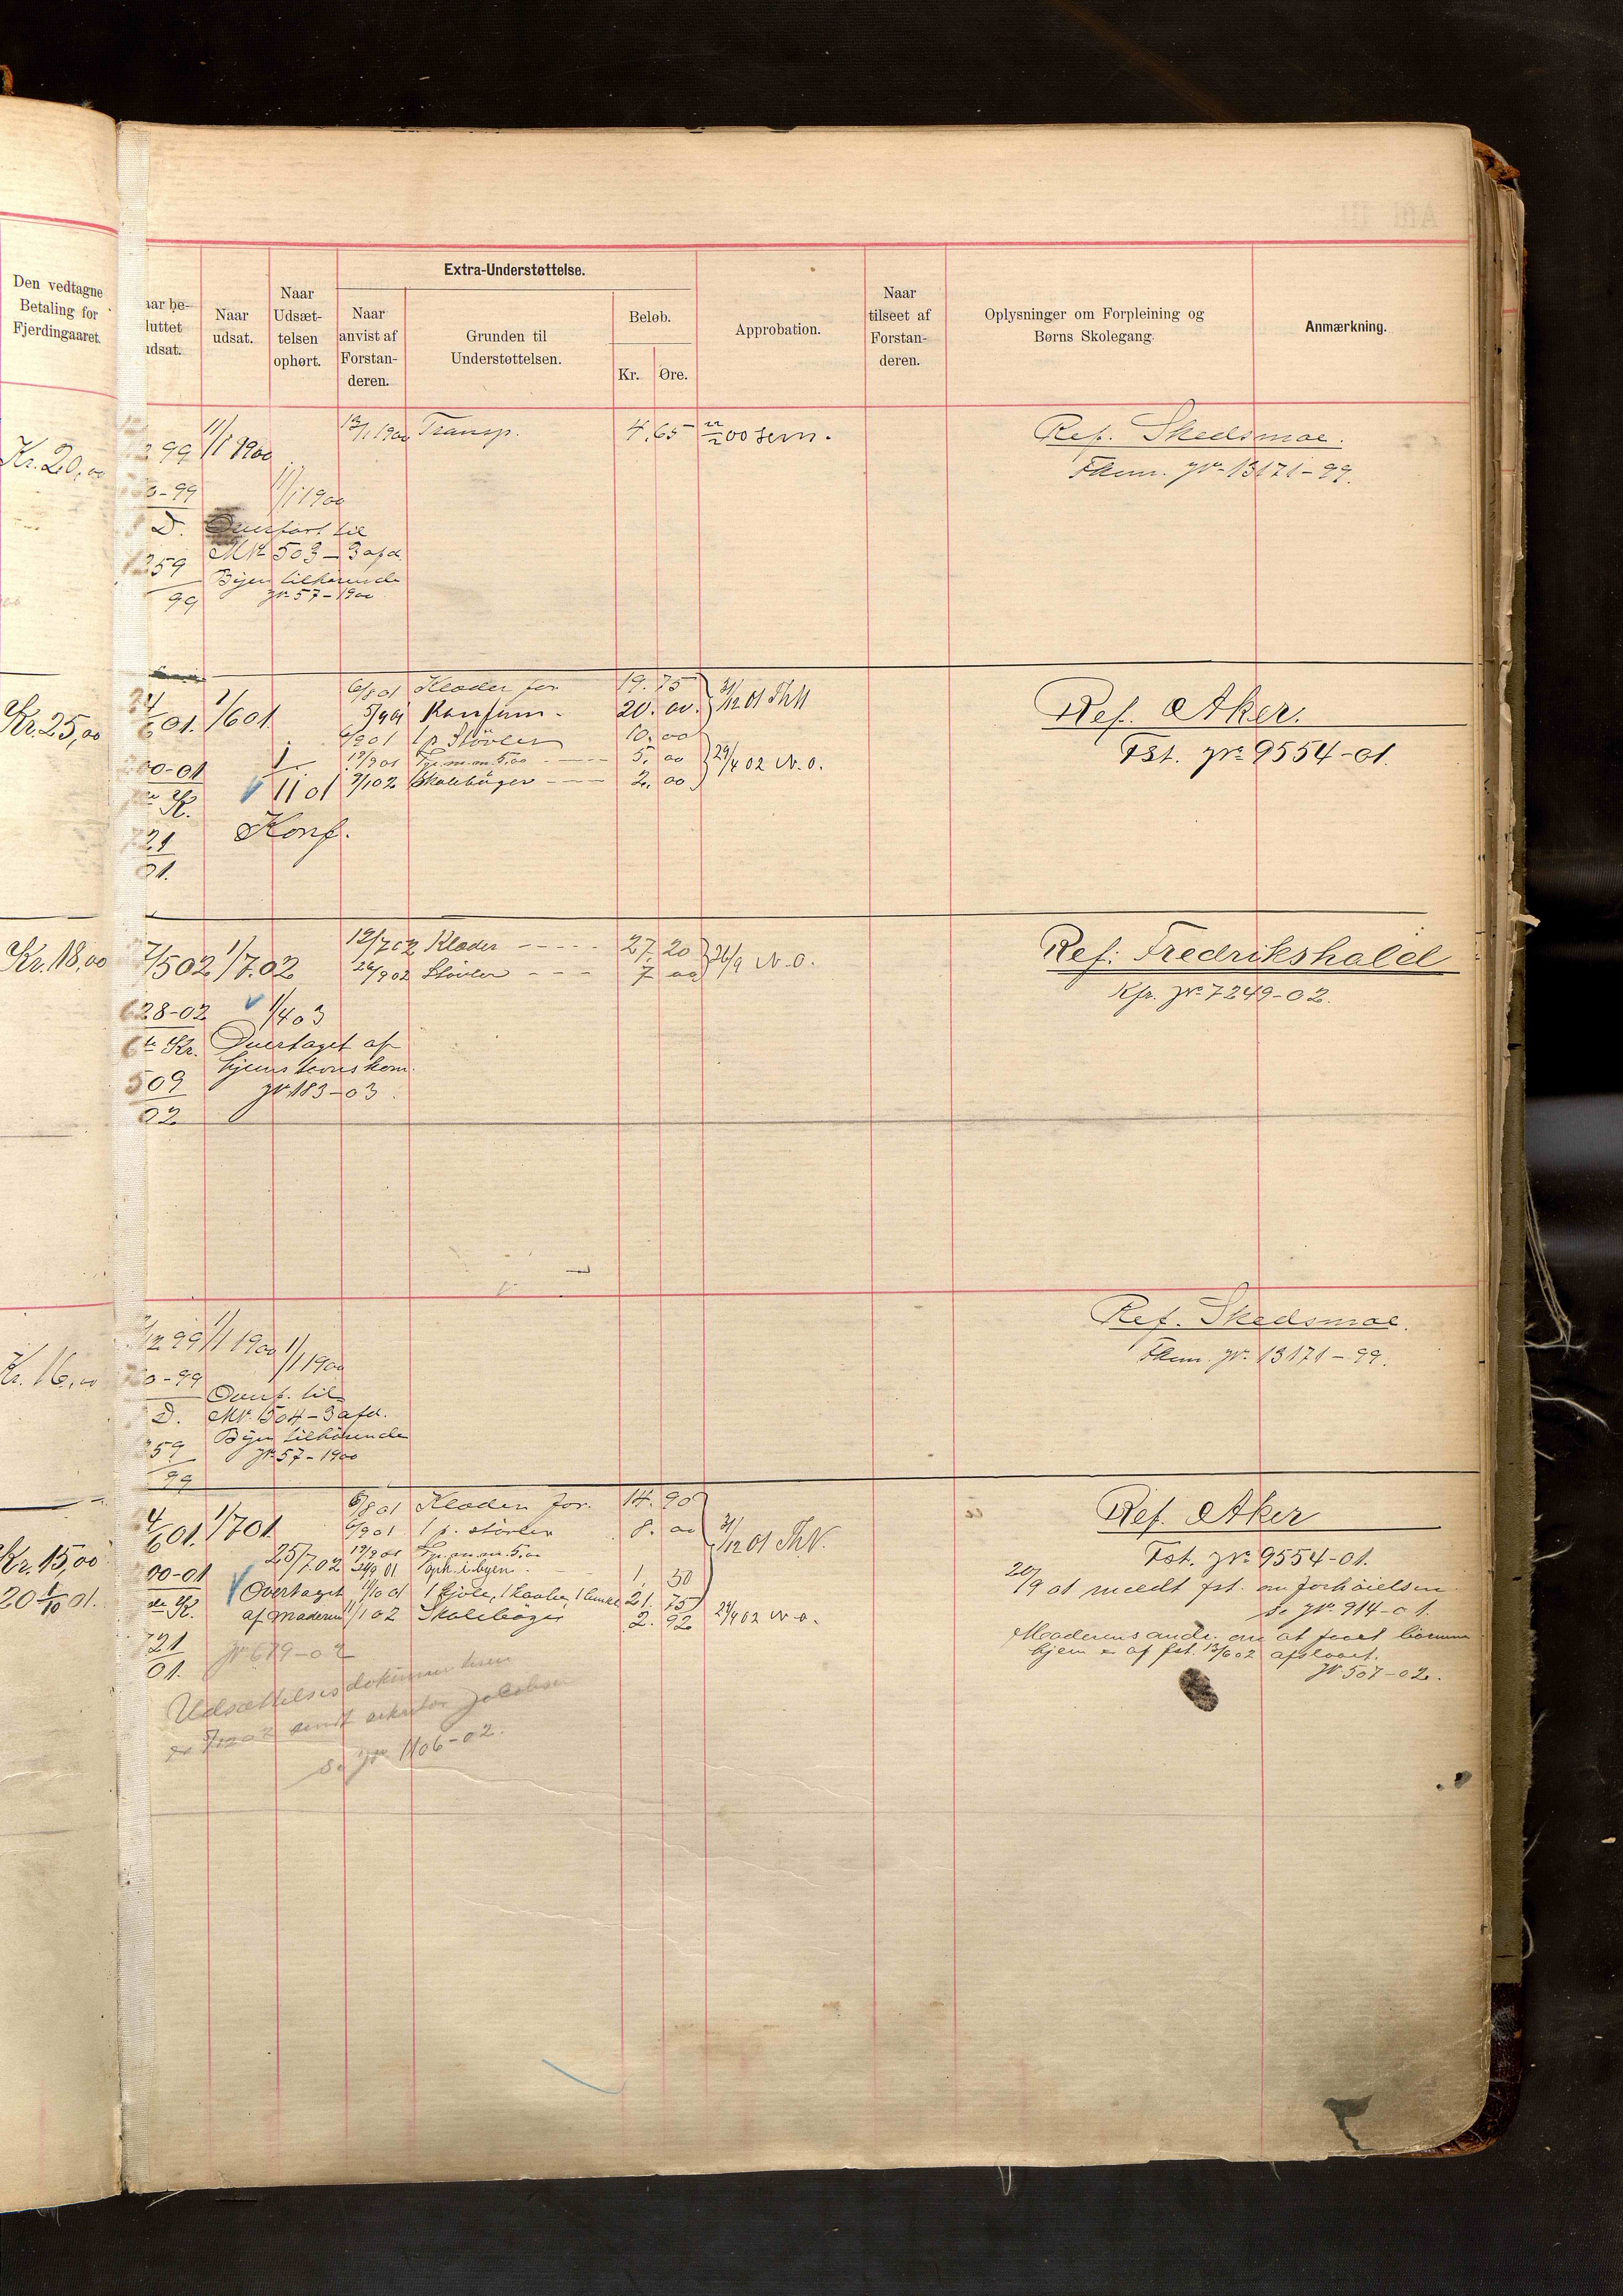 Den vedtagne
Betaling for
Fjerdingaaret.
Kr. 20,00
Kr. 25,00
Kr. 18,00
Kr. 16,00
Kr. 15,00
20 1/10 01.
aar be-
luttet
udsat.
Naar
udsat.
Naar
Udsæt-
telsen
ophørt.
Extra-Understøttelse.
Naar
anvist af
Forstan-
deren.
Grunden til
Understøttelsen.
Beløb.
Kr. Øre.
Approbation.
Naar
tilseet af
Forstan-
deren.
Oplysninger om Forpleining og
Børns Skolegang.
Anmærkning.
99 11/1 1900 13/1 1900 Transp. 4.65
Ref. Skedsmoe.
Fkem. Jr. 13171-99.
0-99 11/1 1900
D. Overført til
1359 Nr 503 - 3 afd.
Byen tilhørende
99 Jr. 57-1900
6/8 01 Klæder for 19.75 31/12 01 ThN
24/6 01. 1/6 01 5/9 01 Konfirm. 20.00
6/9 01 1 p. Støvler 10.00
00-01 19/9 01 m.m. 5,00 5.00 29/4 02 N.O.
1/11 01 9/1 02 Skolebøger 2.00
Ref. Aker.
Fst. Jr. 9554-01.
K.
721 Konf.
01.
7/5 02 1/7.02 12/7 02 Klæder 27.20 26/9 N.O.
26/9 02 Støvler 7 00
Ref. Fredrikshald
Kfr. Jr. 7249-02.
628-02 1/4 03
6te Kr. Overtaget af
hjemstavnskom.
509 Jr. 183-03.
02
/12 99 1/1 1900 1/1 1900
Ref. Skedsmoe.
Fkem. Jr. 13171-99.
0-99 Overf. til
D. Nr. 504-3 afd.
Byen tilhørende
359 Jr. 57-1900
99
6/8 01 Klæder for. 14.90
4/6 01. 1/7 01 6/9 01 1 p. støvler 8.00 31/12 01 ThN.
Ref. Aker
Fst. Jr. 9554-01.
19/9 01 m.m. 5,00
00-01 25/7.02 24/9 01 oph. i byen 1.50
Overtaget 11/10 01 1 kjole, 1 kaabe, 21.75
af Moderen 11/1 02 Skolebøger 2.92 29/4 02 N.O.
K.
20/9 01 meldt fst. om forhøielsen
se Jr. 914-01.
721 Jr 679-02
01.
Moderens andr. om at faa børnene
hjem er af fst. 13/6 02 afslaaet.
Jr 507-02.
Udsættelsesdokumenterne
er sendt Jacobsen
se Jr 1106-02.